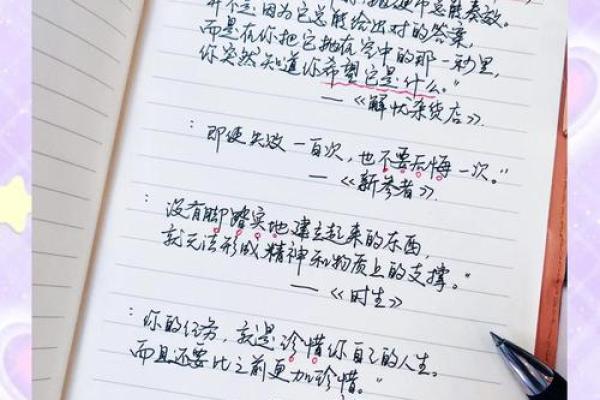 并不是因为它总能给出对的答案,
而是在你把它抛在空中的那一秒里,
你突然知道你希望它是什么。"
—《解忧杂货店》.
:即使失败一百次,也不要后悔一次。"
—《新参者》.
:没有脚踏实地建立起来的东西,
就无法形成精神和物质上的支撑。"
—《时生》
:你的任务,就是珍惜你自己的人生。
而且还要比之前更加珍惜。"